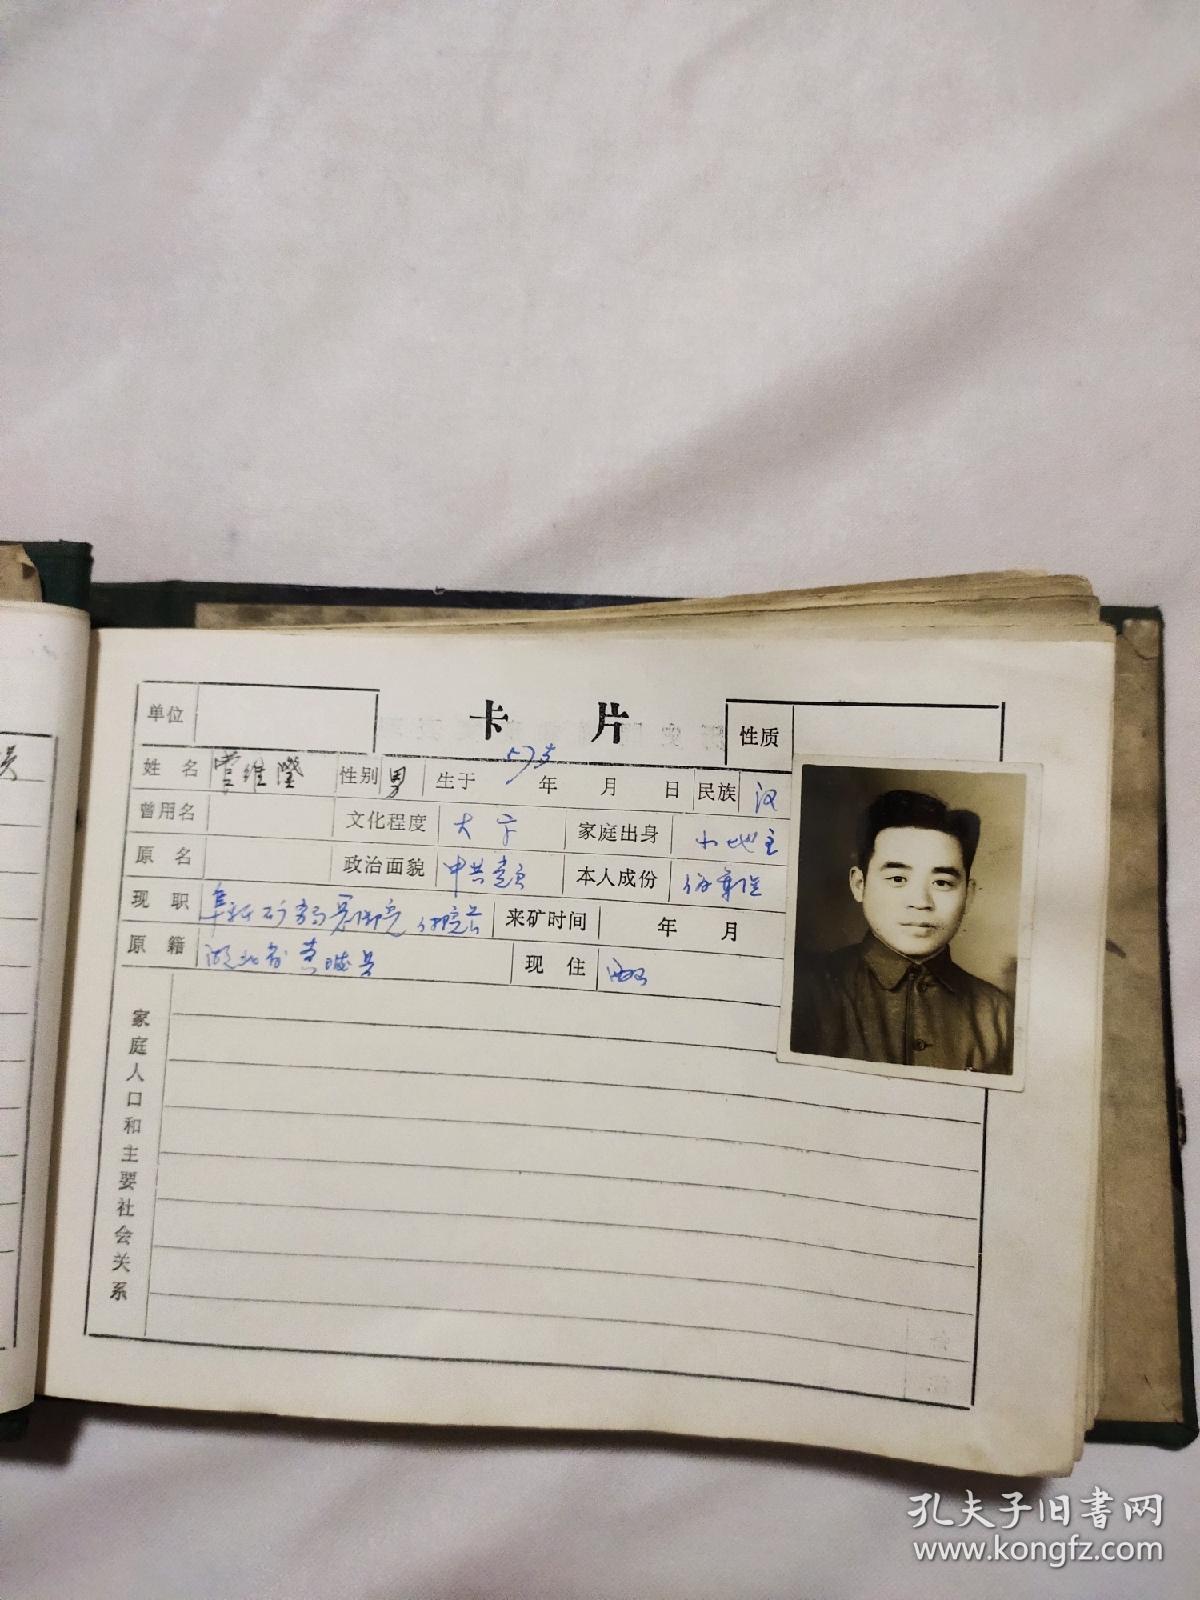 单位
卡 片
性质
姓名 维 性别 男 生于 57岁 年 月 日 民族 汉
曾用名 文化程度 大学 家庭出身 小地主
原名 政治面貌 中共党员 本人成份
现职 阜新矿务局 来矿时间 年 月
原籍 湖北省黄陂县 现住
家庭人口和主要社会关系
孔夫子旧书网
www.kongfz.com